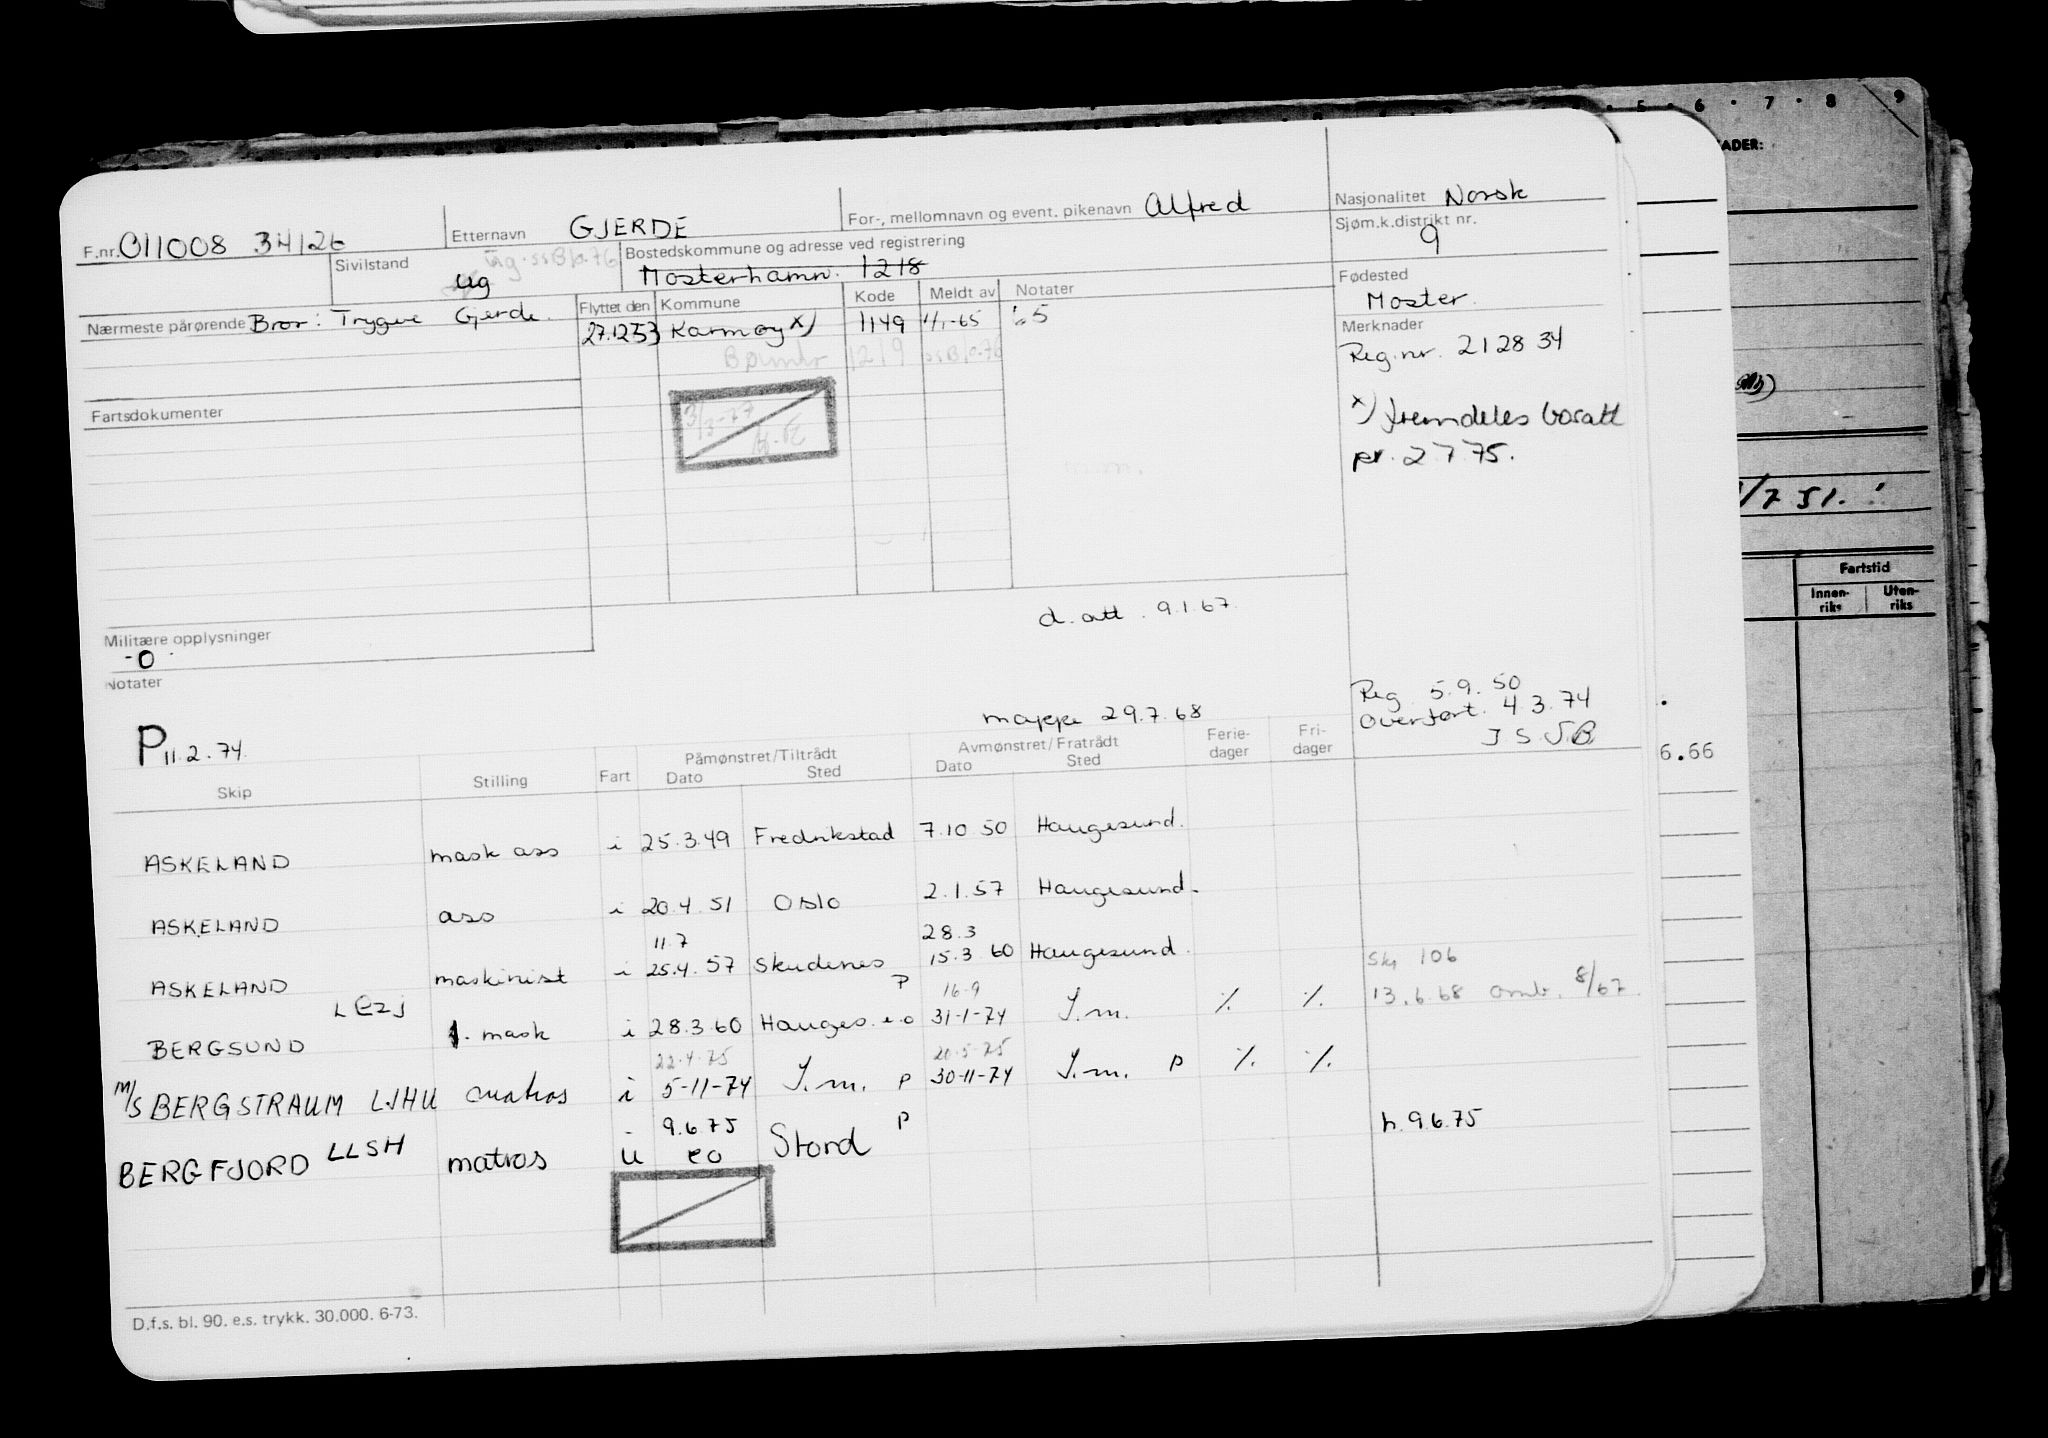 5 · 6 · 7 · 8 9
F.nr. 011008 34126
Etternavn GJERDE
For-, mellomnavn og event. pikenavn Alfred
Nasjonalitet Norsk
Sjøm.k.distrikt nr.
9
Sivilstand
ug
Bostedskommune og adresse ved registrering
Mosterhamn. 1218
Fødested
Moster.
Nærmeste pårørende Bror: Trygve Gjerde.
Flyttet den Kommune Kode Meldt av Notater
27.12 53 Karmøy x) 1149 1/1-65
1219
Merknader
Reg.nr. 212834
x) fremdeles bosatt
pr. 2.7.75.
Fartsdokumenter
3/3-77
Militære opplysninger
-0-
Notater
d. att. 9.1.67.
mappe 29.7.68
Reg. 5.9.50
Overført. 4.3.74
P 11.2.74.
Skip Stilling Fart Påmønstret/Tiltrådt Dato Sted Avmønstret/Fratrådt Dato Sted Ferie-dager Fri-dager
ASKELAND mask ass i 25.3.49 Fredrikstad 7.10 50 Haugesund.
ASKELAND ass i 20.4.51 Oslo 2.1.57 Haugesund.
11.7 28.3
ASKELAND maskinist i 25.4.57 Skudenes 15.3 60 Haugesund.
P 16-9
BERGSUND LEZJ 1. mask i 28.3.60 Hauges. e.o 31-1-74 S.m. % %
106
13.6.68 omb. 8/67.
22.4.75 20.5-75
M/S BERGSTRAUM LJHU matros i 5-11-74 S.m. P 30-11-74 S.m. P % %
9.6.75 P
BERGFJORD LLSH matros u eo Stord
h. 9.6.75
D.f.s. bl. 90. e.s. trykk. 30.000. 6-73.
6.66
ADER:
/7 51.
Fartstid
Innen-riks Uten-riks